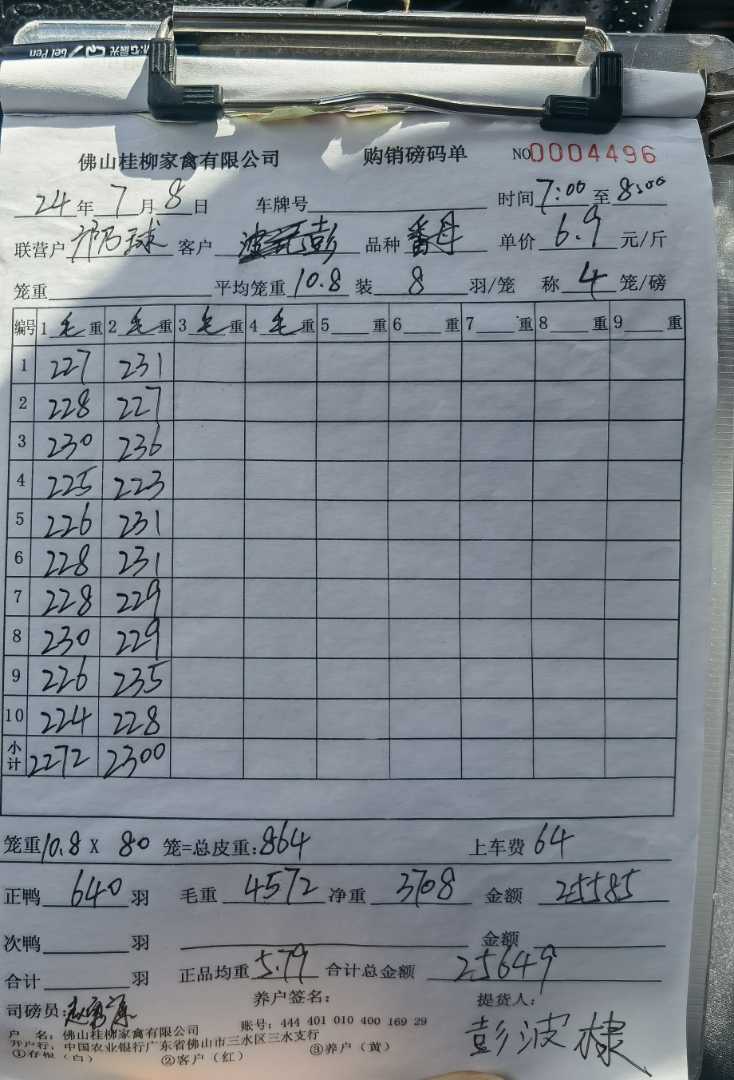 佛山桂柳家禽有限公司 购销磅码单 NO0004496
24年7月8日 车牌号 时间7:00至8:00
联营户 客户 彭 品种 番母 单价6.9元/斤
笼重 平均笼重10.8装8羽/笼 称4笼/磅
编号 1毛重 2毛重 3毛重 4毛重 5重 6重 7重 8重 9重
1 227 231
2 228 227
3 230 236
4 225 223
5 226 231
6 228 231
7 228 229
8 230 229
9 226 235
10 224 228
小计 2272 2300
笼重10.8X80笼=总皮重:864 上车费64
正鸭640羽 毛重4572净重3708 金额25585
次鸭 羽 金额
合计 羽 正品均重5.79合计总金额25649
司磅员: 养户签名: 提货人:
彭波棣
户 名:佛山桂柳家禽有限公司 账号:444 401 010 400 169 29
开户行:中国农业银行广东省佛山市三水区三水支行
①存根(白) ②客户(红) ③养户(黄)